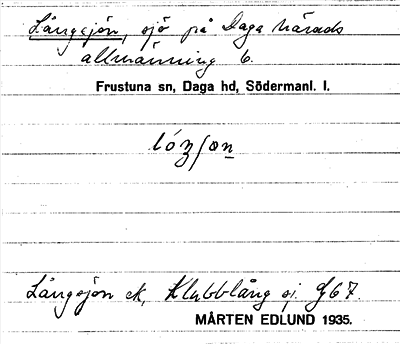 Långsjön, sjö på Daga härads
allmänning 6.
Frustuna sn, Daga hd, Södermanl. l.
lóʒʃøn
Långsjön ek, Klubblång sj. G67.
MÅRTEN EDLUND 1935.